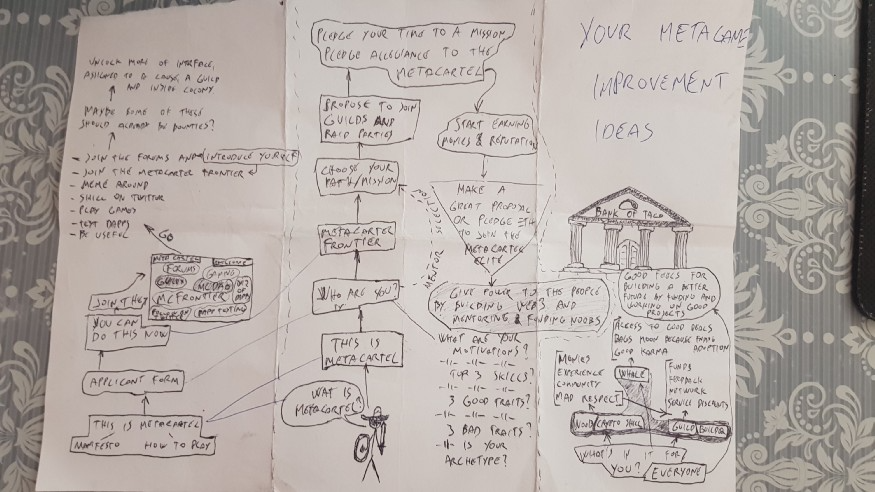 UNLOCK MORE OF INTERFACE,
ASSIGNED TO A COLONY, A GUILD
AND INSIDE COLONY
MAYBE SOME OF THESE
SHOULD BE DONE BY BOUNTIES?
- JOIN THE FORUMS AND INTRODUCE YOURSELF
- JOIN THE METACARTEL FRONTIER
- MEME AROUND
- SHILL ON TWITTER
- PLAY GAMES
- TEST DAPPS
- BE USEFUL
GO
FORUMS
GAMING
MCDAO
MCFRONTIER
DAPP TESTING
JOIN THEY
YOU CAN
DO THIS NOW
APPLICANT FORM
THIS IS METACARTEL
MANIFESTO HOW TO PLAY
PLEDGE YOUR TIME TO A MISSION
PLEDGE ALLEGIANCE TO THE
METACARTEL
PROPOSE TO JOIN
GUILDS AND
RAID PARTIES
CHOOSE YOUR
PATH/MISSION
METACARTEL
FRONTIER
WHO ARE YOU?
THIS IS
METACARTEL
WAT IS
METACARTEL?
START EARNING
MONIES & REPUTATION
MAKE A
GREAT PROPOSAL
OR PLEDGE ETH
TO JOIN THE
METACARTEL
ELITE
MENTOR SELECTION
GIVE POWER TO THE PEOPLE
BY BUILDING WEB3 AND
MENTORING & FUNDING NOOBS
WHAT ARE YOUR
MOTIVATIONS?
-11- -11- -11-
TOP 3 SKILLS?
-11- -11- -11-
3 GOOD TRAITS?
-11- -11- -11-
3 BAD TRAITS?
-11- IS YOUR
ARCHETYPE?
YOUR METAGAME
IMPROVEMENT
IDEAS
BANK OF TACO
GOOD FEELS FOR
BUILDING A BETTER
FUTURE BY FUNDING AND
WORKING ON GOOD
PROJECTS
ACCESS TO GOOD DEALS
BAGS MOON BECAUSE
ADOPTION
GOOD KARMA
MONIES
EXPERIENCE
COMMUNITY
MAD RESPECT
WHALE
FUNDS
FEEDBACK
NETWORK
SERVICE DISCOUNTS
NOOB CRYPTO SKILL GUILD BUILDER
WHAT'S IN IT FOR
YOU? EVERYONE